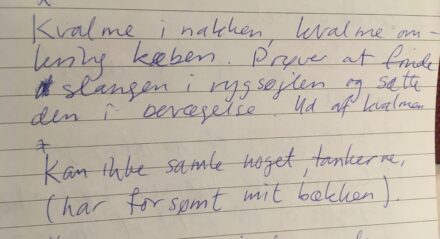 Kvalme i nakken, kvalme om-
kring kæben. Prøver at finde
slangen i rygsøjlen og sætte
den i bevægelse. Ud af kvalmen
*
Kan ikke samle noget, tankerne,
(har forsømt mit bækken).